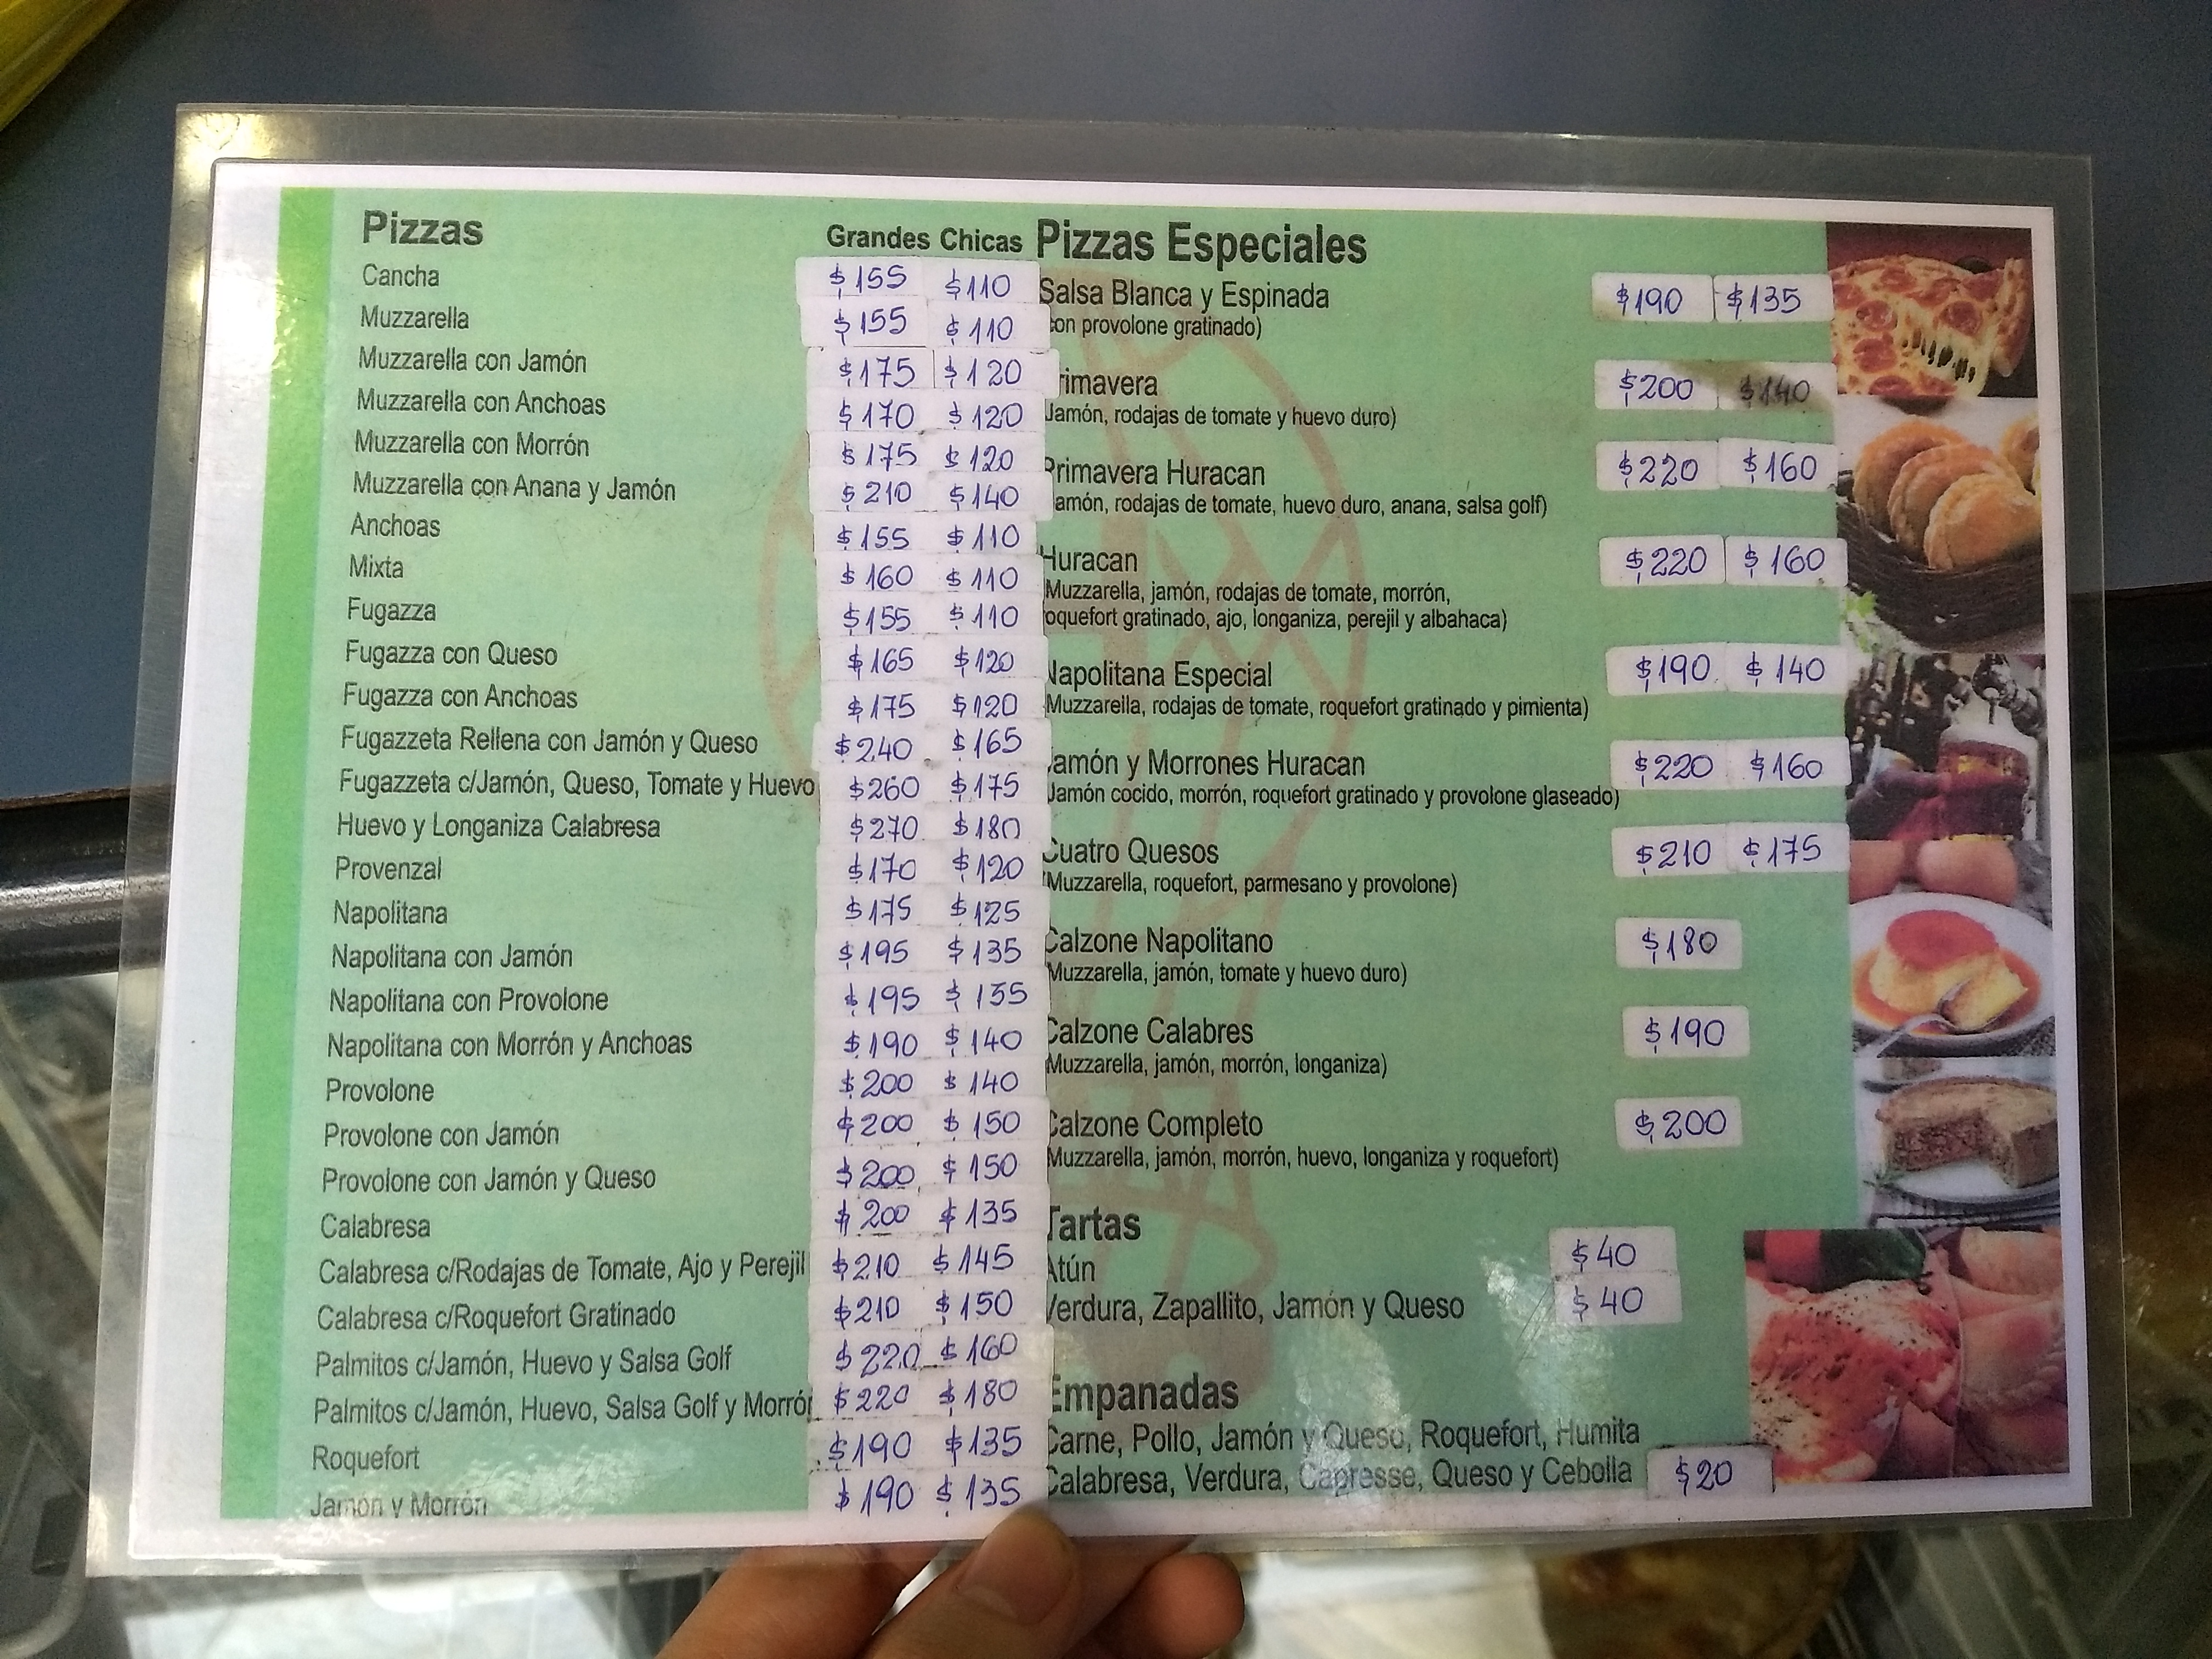 Pizzas Grandes Chicas
Cancha $155 $110
Muzzarella $155 $110
Muzzarella con Jamón $175 $120
Muzzarella con Anchoas $170 $120
Muzzarella con Morrón $175 $120
Muzzarella con Anana y Jamón $210 $140
Anchoas $155 $110
Mixta $160 $110
Fugazza $155 $110
Fugazza con Queso $165 $120
Fugazza con Anchoas $175 $120
Fugazzeta Rellena con Jamón y Queso $240 $165
Fugazzeta c/Jamón, Queso, Tomate y Huevo $260 $175
Huevo y Longaniza Calabresa $270 $180
Provenzal $170 $120
Napolitana $175 $125
Napolitana con Jamón $195 $135
Napolitana con Provolone $195 $135
Napolitana con Morrón y Anchoas $190 $140
Provolone $200 $140
Provolone con Jamón $200 $150
Provolone con Jamón y Queso $200 $150
Calabresa $200 $135
Calabresa c/Rodajas de Tomate, Ajo y Perejil $210 $145
Calabresa c/Roquefort Gratinado $210 $150
Palmitos c/Jamón, Huevo y Salsa Golf $220 $160
Palmitos c/Jamón, Huevo, Salsa Golf y Morrón $220 $180
Roquefort $190 $135
Jamón y Morrón $190 $135
Pizzas Especiales
Salsa Blanca y Espinada $190 $135
con provolone gratinado)
Primavera $200 $140
Jamón, rodajas de tomate y huevo duro)
Primavera Huracan $220 $160
Jamón, rodajas de tomate, huevo duro, anana, salsa golf)
Huracan $220 $160
(Muzzarella, jamón, rodajas de tomate, morrón,
roquefort gratinado, ajo, longaniza, perejil y albahaca)
Napolitana Especial $190 $140
(Muzzarella, rodajas de tomate, roquefort gratinado y pimienta)
Jamón y Morrones Huracan $220 $160
(Jamón cocido, morrón, roquefort gratinado y provolone glaseado)
Cuatro Quesos $210 $175
(Muzzarella, roquefort, parmesano y provolone)
Calzone Napolitano $180
(Muzzarella, jamón, tomate y huevo duro)
Calzone Calabres $190
(Muzzarella, jamón, morrón, longaniza)
Calzone Completo $200
(Muzzarella, jamón, morrón, huevo, longaniza y roquefort)
Tartas
Atún $40
Verdura, Zapallito, Jamón y Queso $40
Empanadas
Carne, Pollo, Jamón y Queso, Roquefort, Humita
Calabresa, Verdura, Capresse, Queso y Cebolla $20